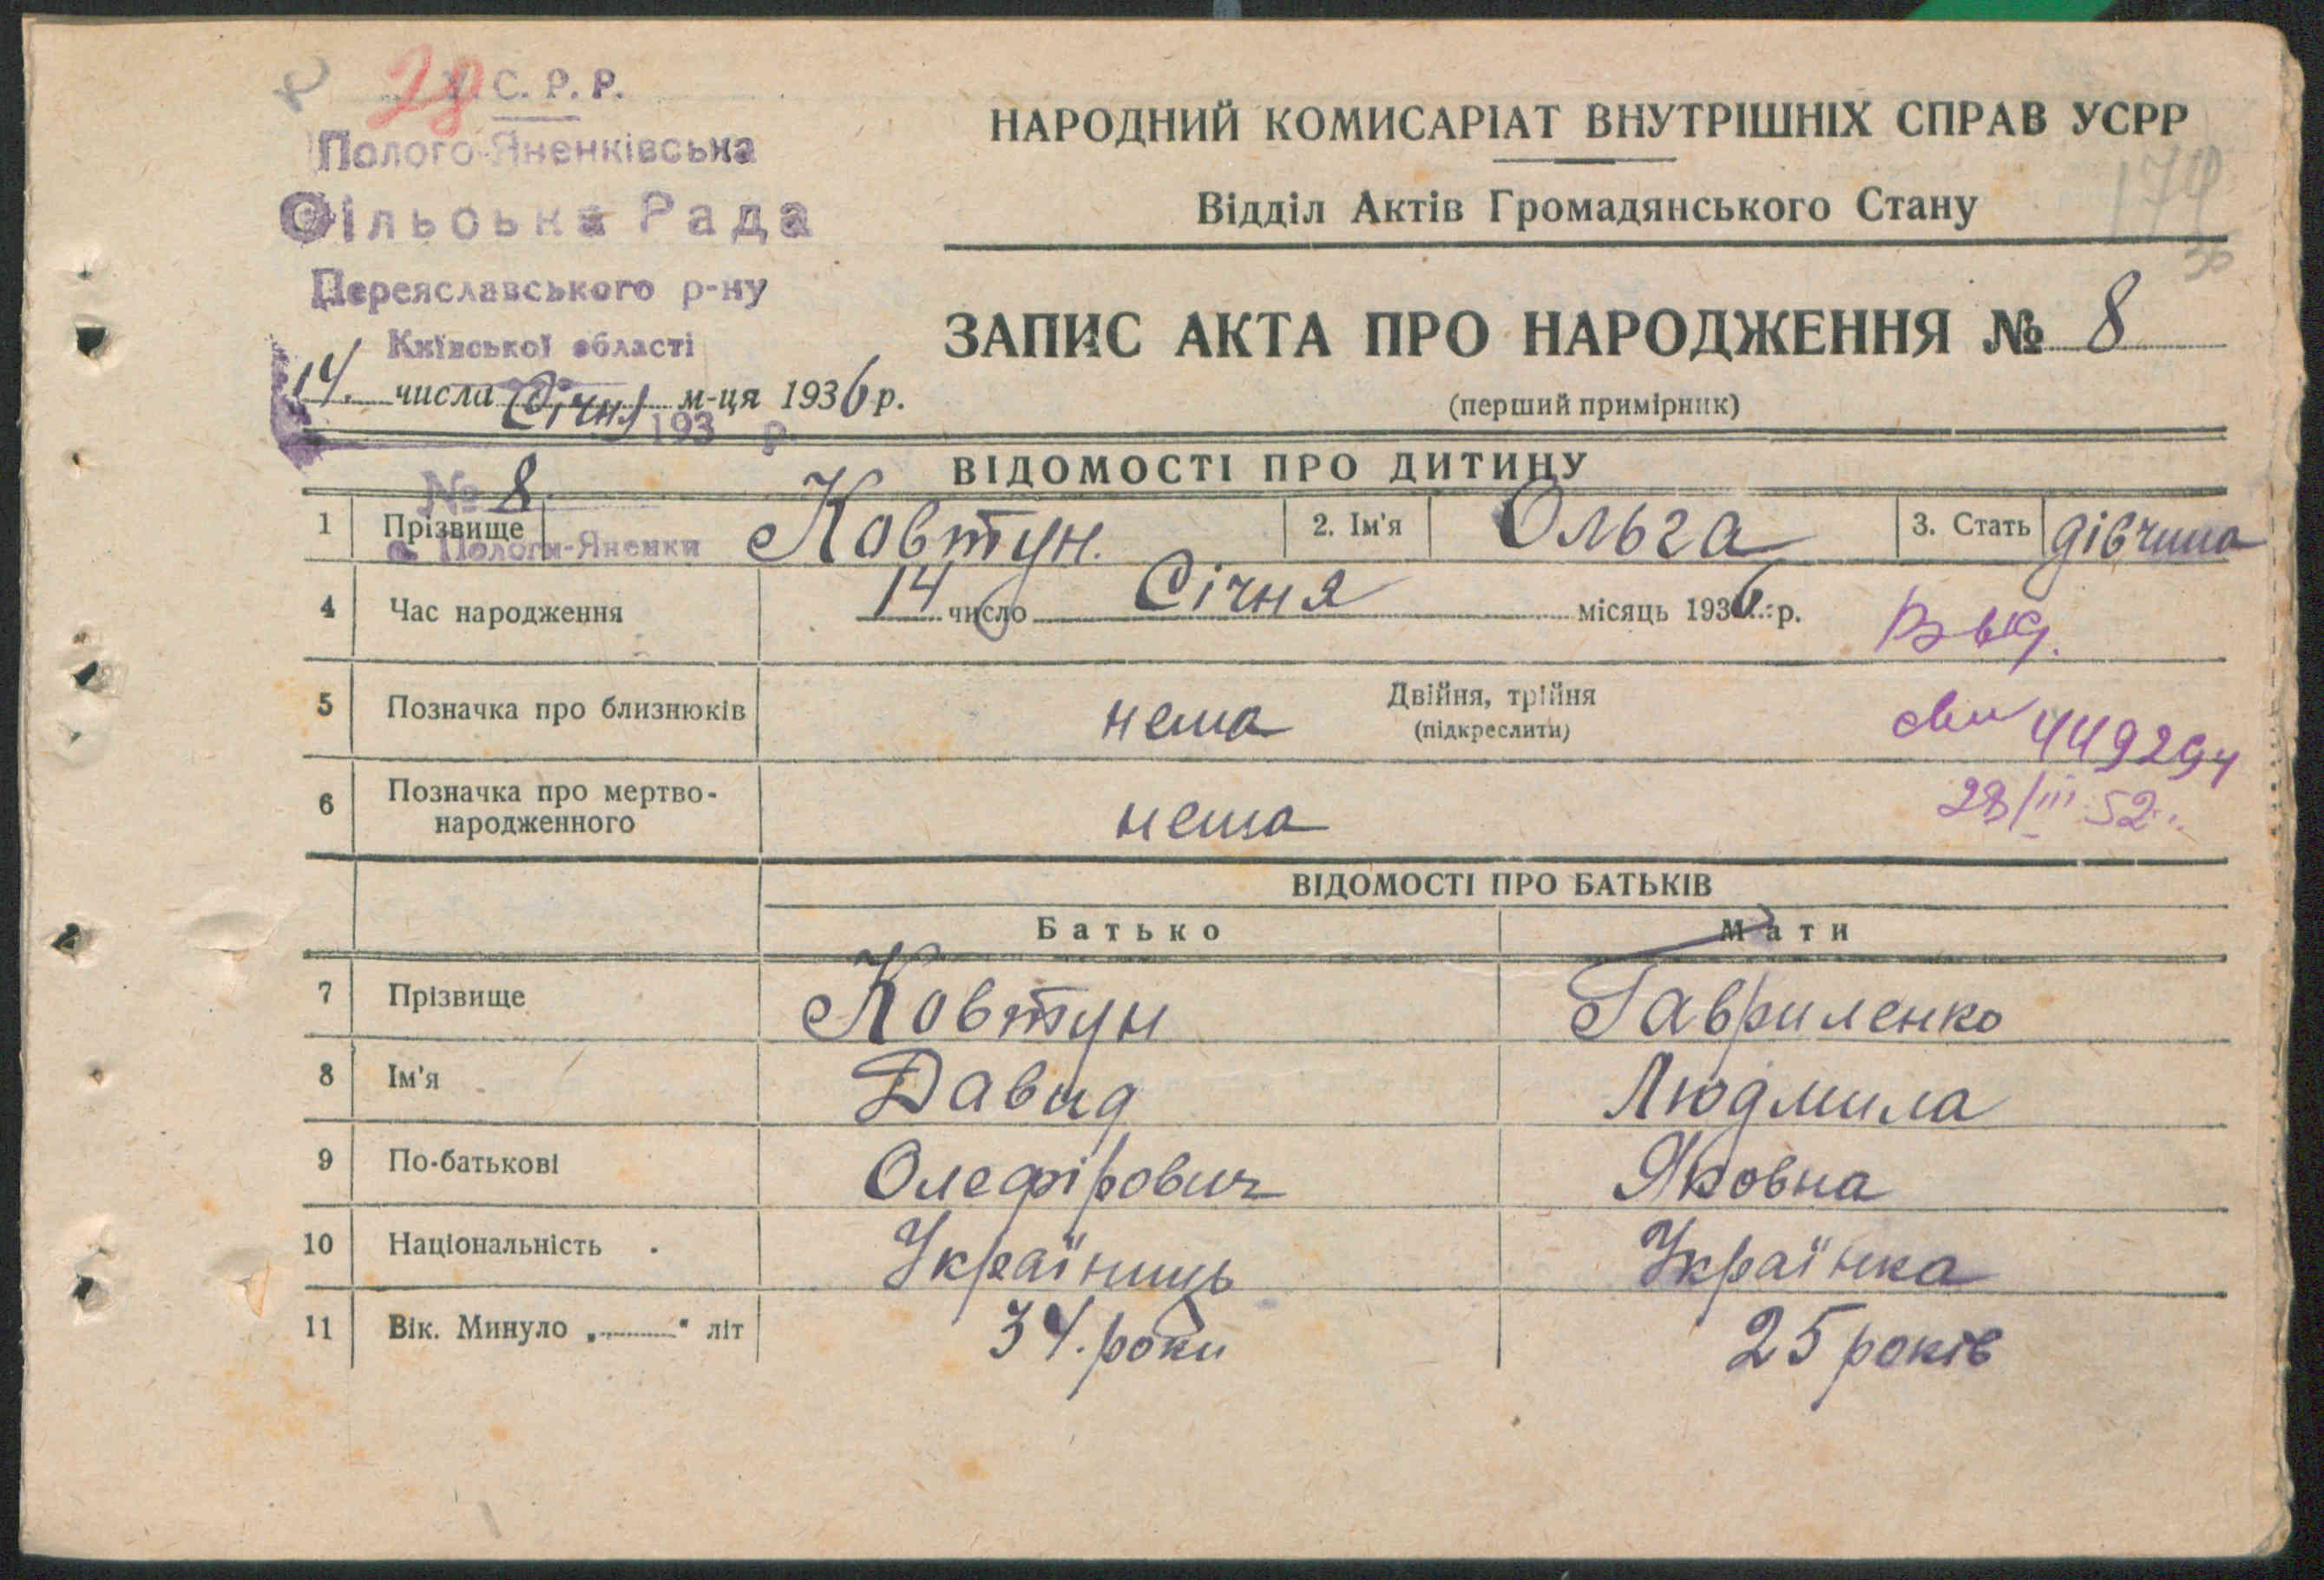 28
У.С.Р.Р.
Полого-Яненківська
Сільська Рада
Переяславського р-ну
Київської області
14. числа Січня м-ця 1936 р.
193 р.
№ 8
с. Пологи-Яненки
НАРОДНИЙ КОМИСАРІАТ ВНУТРІШНІХ СПРАВ УСРР
Відділ Актів Громадянського Стану
ЗАПИС АКТА ПРО НАРОДЖЕННЯ № 8
(перший примірник)
ВІДОМОСТІ ПРО ДИТИНУ
1 Прізвище Ковтун. 2. Ім'я Ольга 3. Стать дівчина
4 Час народження 14 число Січня місяць 1936 р.
5 Позначка про близнюків нема Двійня, трійня
(підкреслити)
449294
6 Позначка про мертво-
народженного нема
28/III 52
ВІДОМОСТІ ПРО БАТЬКІВ
Батько Мати
7 Прізвище Ковтун Гавриленко
8 Ім'я Давид Людмила
9 По-батькові Олефірович Яковна
10 Національність Україниць Українка
11 Вік. Минуло „ " літ 34. роки 25 років